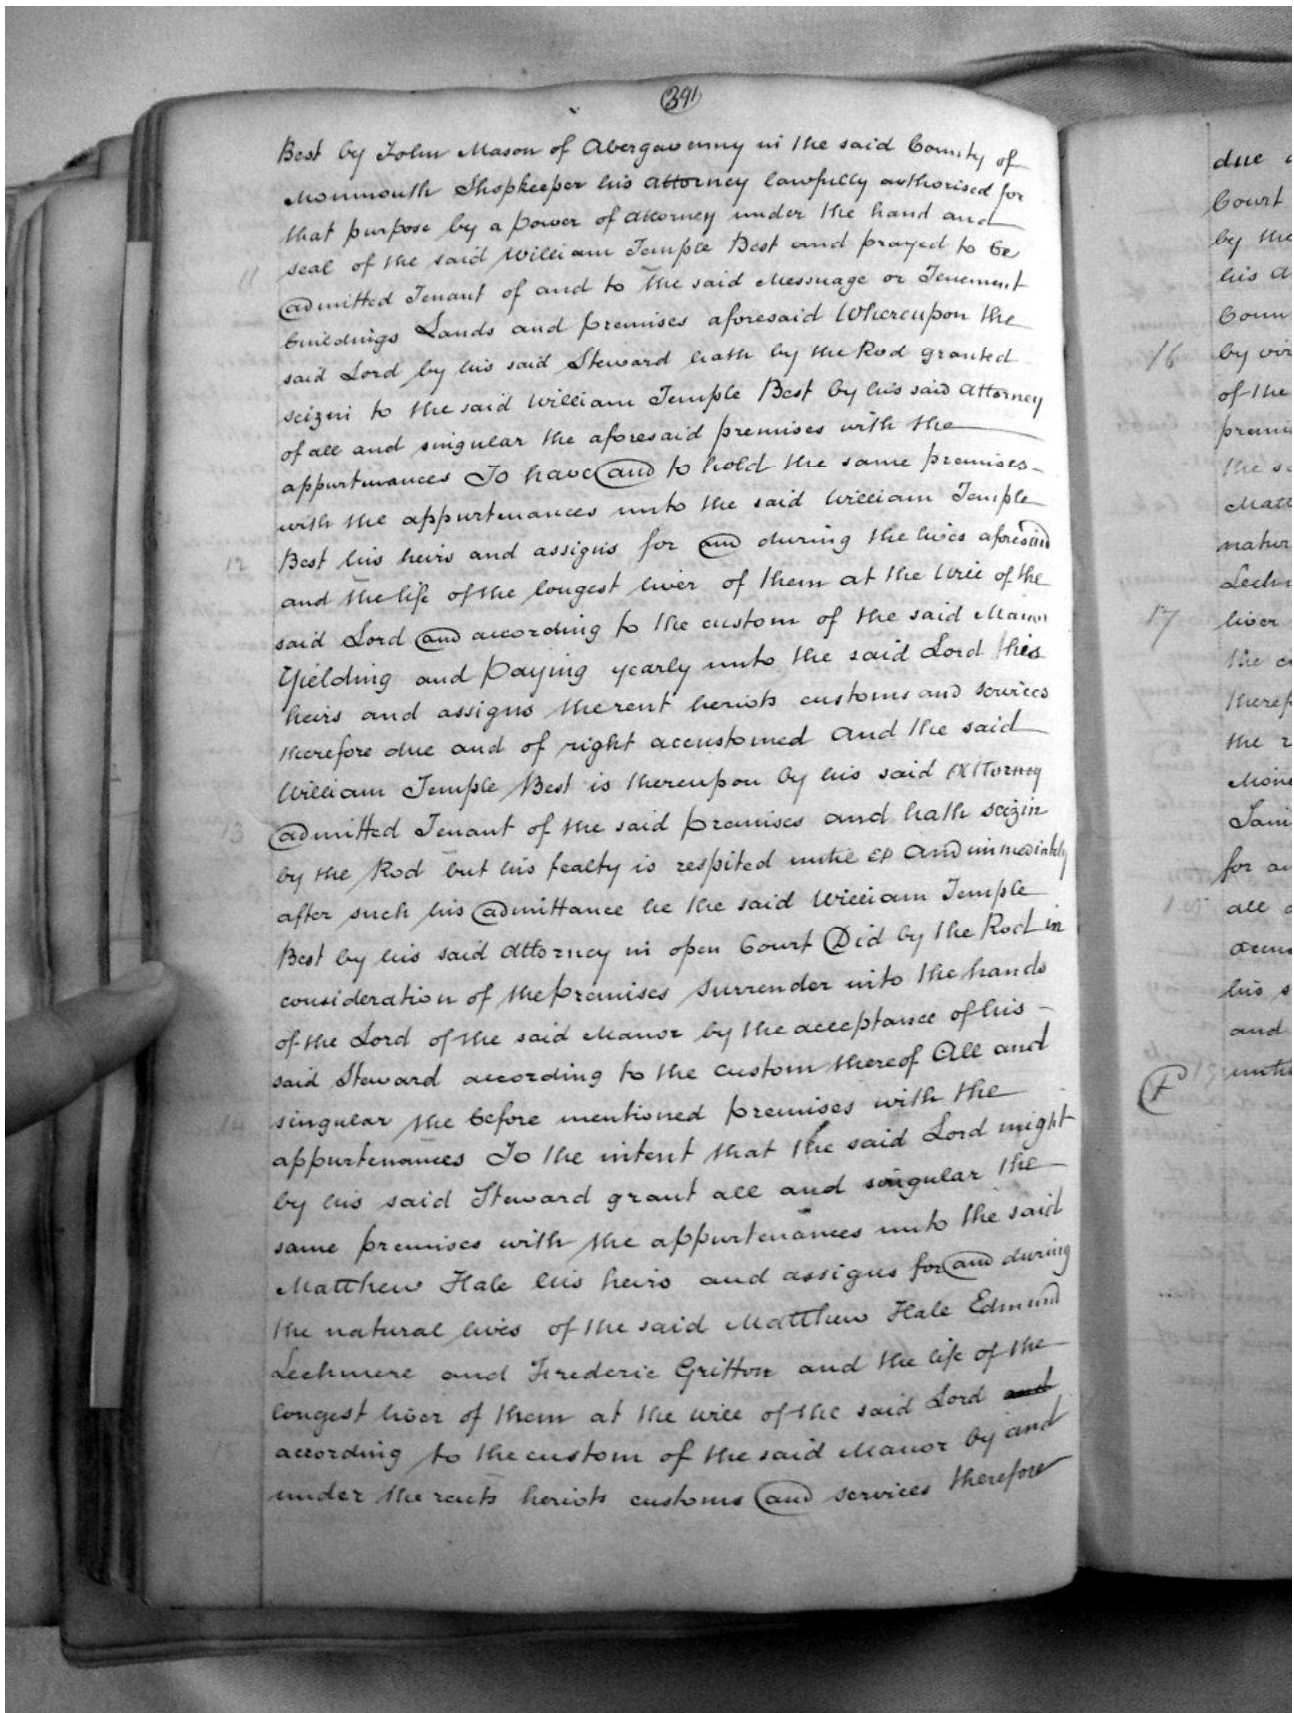 391
Best by John Mason of Abergavenny in the said County of
Monmouth Shopkeeper his attorney lawfully authorised for
that purpose by a power of attorney under the hand and
11 seal of the said William Temple Best and prayed to be
admitted Tenant of and to the said Messuage or Tenement
buildings Lands and premises aforesaid Whereupon the
said Lord by his said Steward hath by the Rod granted
seizin to the said William Temple Best by his said attorney
of all and singular the aforesaid premises with the
appurtenances To have and to hold the same premises
with the appurtenances unto the said William Temple
12 Best his heirs and assigns for and during the lives aforesaid
and the life of the longest liver of them at the Will of the
said Lord and according to the custom of the said Manor
Yielding and Paying yearly unto the said Lord his
heirs and assigns the rent heriots customs and services
therefore due and of right accustomed and the said
William Temple Best is thereupon by his said Attorney
13 admitted Tenant of the said premises and hath seizin
by the Rod but his fealty is respited until &c and immediately
after such his admittance he the said William Temple
Best by his said attorney in open Court Did by the Rod in
consideration of the premises surrender into the hands
of the Lord of the said Manor by the acceptance of his
said Steward according to the custom thereof All and
14 singular the before mentioned premises with the
appurtenances To the intent that the said Lord might
by his said Steward grant all and singular the
same premises with the appurtenances unto the said
Matthew Hale his heirs and assigns for and during
the natural lives of the said Matthew Hale Edmund
Lechmere and Frederic Gritton and the life of the
longest liver of them at the will of the said Lord and
according to the custom of the said Manor by and
under the rents heriots customs and services therefore
due
Court
by the
his
16 by
of the
the
17 liver
the
the
for
all
his
and